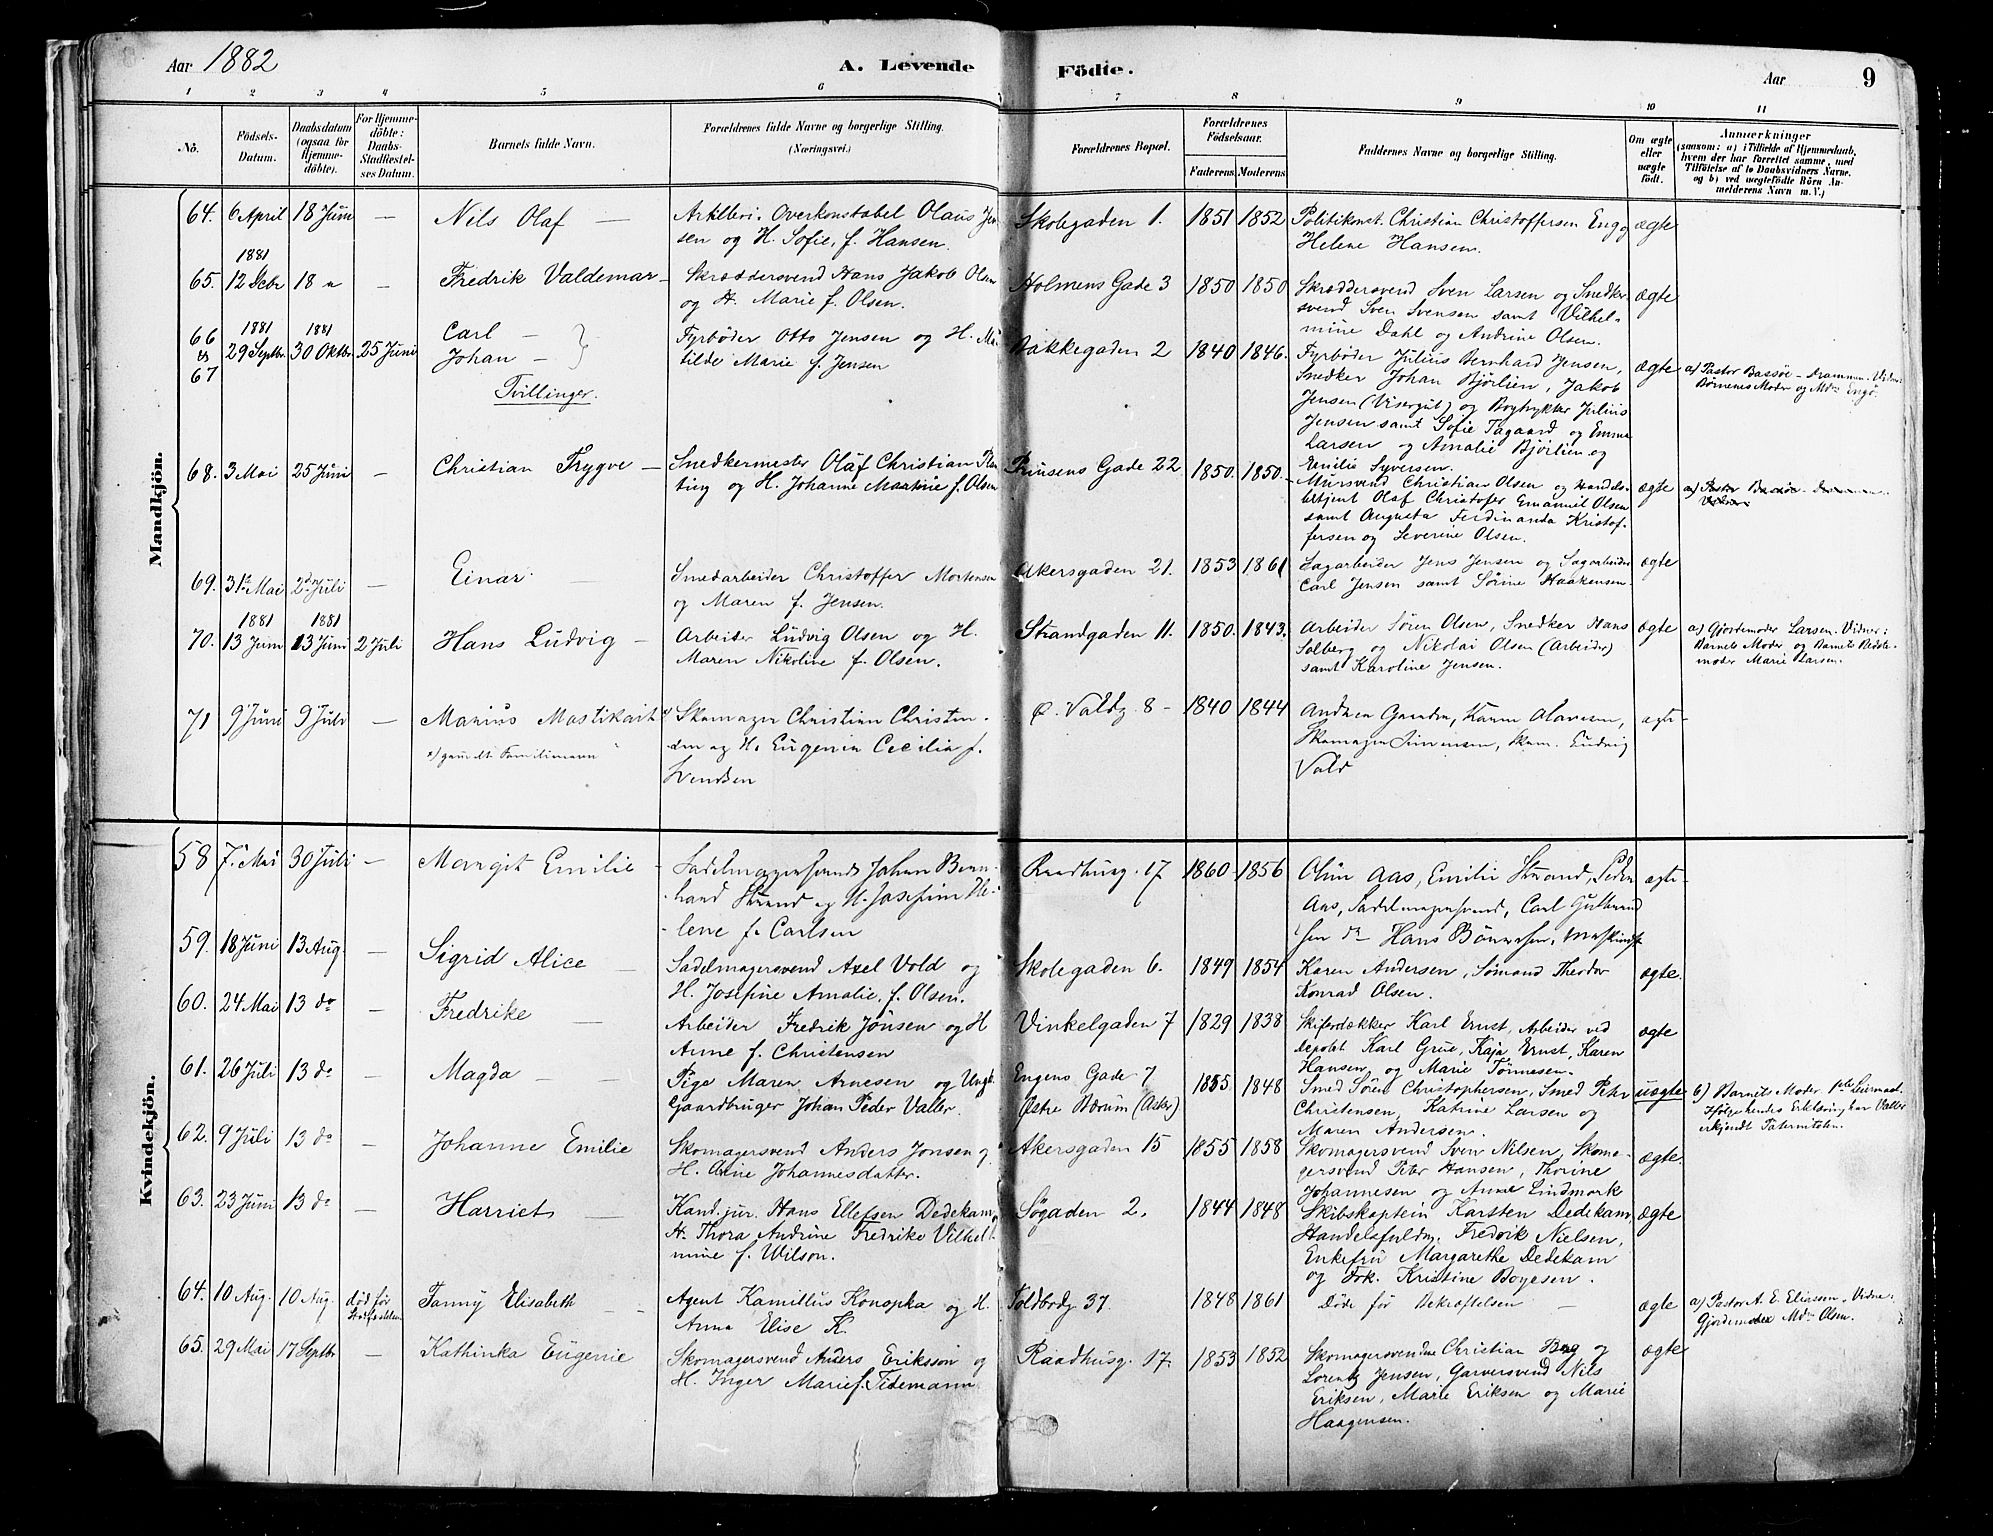 Aar 1882
A. Levende
Födte.
Aar
9
1 2 3 4 5 6 7 8 9 10 11
No.
Födsels-
Datum.
Daabsdatum
(ogsaa for
Hjemme-
döbte).
For Hjemme-
döbte:
Daabs-
Stadfæstel-
ses Datum.
Barnets fulde Navn.
Forældrenes fulde Navne og borgerlige Stilling.
(Næringsvei.)
Forældrenes Bopæl.
Forældrenes
Födselsaar.
Faderens Moderens
Faddernes Navne og borgerlige Stilling.
Om ægte
eller
uægte
födt.
Anmærkninger
(saasom: a) i Tilfælde af Hjemmedaab,
hvem der har forrettet samme, med
Tilföielse af to Daabsvidners Navne,
og b) ved uægtefödte Börn An-
melderens Navn m. V.)
Mandkjön.
64. 6 April 18 Juni — Nils Olaf — Artilleri. Overkonstabel Olaus Jen- Skolegaden 1. 1851 1852 Politikonst. Christian Christoffersen Eng og ægte
sen og H. Sofie, f. Hansen. Helene Hansen.
1881
65. 12 Decbr 18 " — Fredrik Valdemar — Skræddersvend Hans Jakob Olsen Holmens Gade 3 1850 1850 Skræddersvend Sven Larsen og Snedker- ægte
og H. Marie f. Olsen. svend Sven Svensen samt Vilhel-
mine Dahl og Andrine Olsen.
66 1881 1881 Carl —
& 29 Septbr 30 Oktbr 25 Juni Johan — Fyrbøder Otto Jensen og H. Ma- Bakkegaden 2 1840 1846. Fyrbøder Julius Bernhard Jensen, ægte a) Pastor Bassøe — Drammen. Vidner:
67 tilde Marie f. Jensen Snedker Johan Bjørlien, Jakob Børnenes Moder og Md. Engø.
Tvillinger. Jensen (Visergut) og Bogtrykker Julius
Jensen samt Sofie Tagaard og Emma
Larsen og Amalie Bjørlien og
Emilie Syversen.
68. 3 Mai 25 Juni — Christian Trygve — Snedkermester Olaf Christian Plan- Prinsens Gade 22 1850. 1850. Mursvend Christian Olsen og Handels- ægte a) Pastor Bassøe. Drammen.
ting og H. Johanne Martine f. Olsen betjent Olaf Christofer Emanuel Olsen Vidner:
samt Augusta Ferdinanda Kristof-
fersen og Severine Olsen.
69. 31te Mai 2d Juli — Einar — Smedarbeider Christoffer Mortensen Akersgaden 21. 1853 1861 Sagarbeider Jens Jensen og Sagarbeider ægte
og Maren f. Jensen. Carl Jensen samt Sørine Haakensen.
1881 1881
70. 13 Juni 13 Juni 2 Juli Hans Ludvig — Arbeider Ludvig Olsen og H. Strandgaden 11. 1850. 1843. Arbeider Søren Olsen, Snedker Hans ægte a) Gjordemoder Larsen. Vidner:
Maren Nikoline f. Olsen. Solberg og Nikolai Olsen (Arbeider) Barnets Moder og Barnets Bedste-
samt Karoline Jensen. moder Marie Larsen.
71 9 Juni 9 Juli — Marius Mastikait *) Skomager Christian Christen- Ø. Voldg. 8 — 1840 1844 Andrea Olavesen, ægte
*) Familienavn sen og H. Eugenia Cecilia f. Skomager Simensen, Skom. Ludvig
Svendsen Vold
Kvindekjön.
58 7. Mai 30 Juli — Margit Emilie — Sadelmagersvend Johan Bern- Raadhusg. 17 1860 1856 Oline Aas, Emilie Strand, Peder ægte
hard Strand og H. Josefine He- Aas, Sadelmagersvend, Carl Gulbrand-
lene f. Carlsen sen do Hans
59. 18 Juni 13 Aug. — Sigrid Alice — Sadelmagersvend Axel Vold og Skolegaden 6. 1849 1854 Karen Andersen, Sømand Theodor ægte.
H. Josefine Amalie, f. Olsen. Konrad Olsen.
60. 24 Mai 13 do — Fredrike — Arbeider Fredrik Jonsen og H Vinkelgaden 7 1829 1838 Skiferdækker Karl Ernst, Arbeider ved ægte
Anne f. Christensen Depotet Karl Grue, Kaja Ernst, Karen
Hansen og Marie Tønnesen.
61. 26 Juli 13 do — Magda — Pige Maren Arnesen og Ungk. Engens Gade 7 1855 1848 Smed Søren Christophersen, Smed Peter uægte b) Barnets Moder 1ste Leiermaal.
Gaardbruger Johan Peder Valler. Østre Bærum (Asker) Christensen, Katrine Larsen og Ifølge hendes Erklæring har Valler
Maren Andersen. erkjendt Paterniteten.
62. 9 Juli 13 do — Johanne Emilie Skomagersvend Anders Jonsen og Akersgaden 15 1855 1858 Skomagersvend Sven Nilsen, Skoma- ægte.
H. Anne Johannesdatter. gersvend Peter Hansen, Thorine
Johannesen og Anne Lindmork
63. 23 Juni 13 do — Harriet — Kand. jur. Hans Ellefsen Dedekam, Søgaden 2. 1844 1848 Skibskaptein Karsten Dedekam, ægte
H. Thora Andrine Fredrike Vilhel- Handelsfuldm. Fredrik Nielsen,
mine f. Wilson. Enkefru Margarethe Dedekam
og Frk. Kristine Boyesen.
64. 10 Aug. 10 Aug. død før Fanny Elisabeth — Agent Kamillus Konopka og H. Toldbodg 37. 1848 1861 Døde før Bekræftelsen — ægte a) Pastor A. E. Eliassen. Vidne:
Stadfæstelsen Anna Elise K. Gjordemoder Md. Olsen.
65. 29 Mai 17 Septbr — Kathinka Eugenie Skomagersvend Anders Eriksson og Raadhusg. 17. 1853 1852 Skomagersvendene Christian Berg og ægte
H. Inger Marie f. Tidemann Lorentz Jensen, Garversvend Nils
Eriksen, Marie Eriksen og Marie
Haagensen.